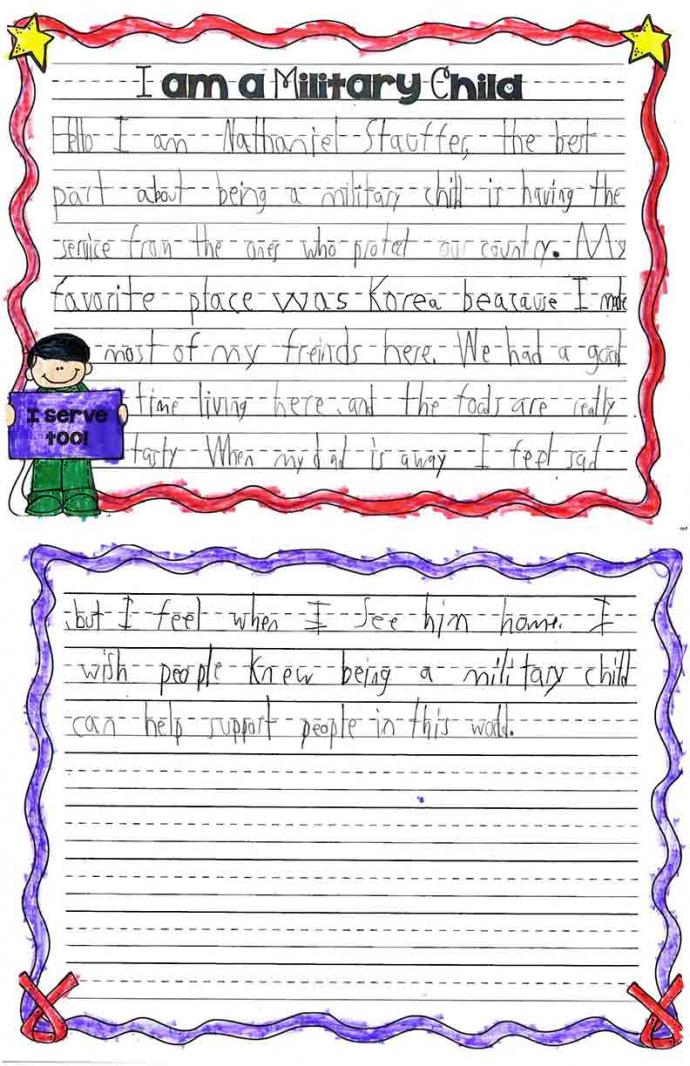 I am a Military Child
Hello I am Nathaniel Stauffer, the best
part about being a military child is having the
service from the ones who protect our country. My
favorite place was Korea beacause I made
most of my freinds here. We had a good
time living here and the foods are really
I serve
too!
tasty When my dad is away I feel sad
but I feel when I see him home. I
wish people knew being a military child
can help support people in this world.